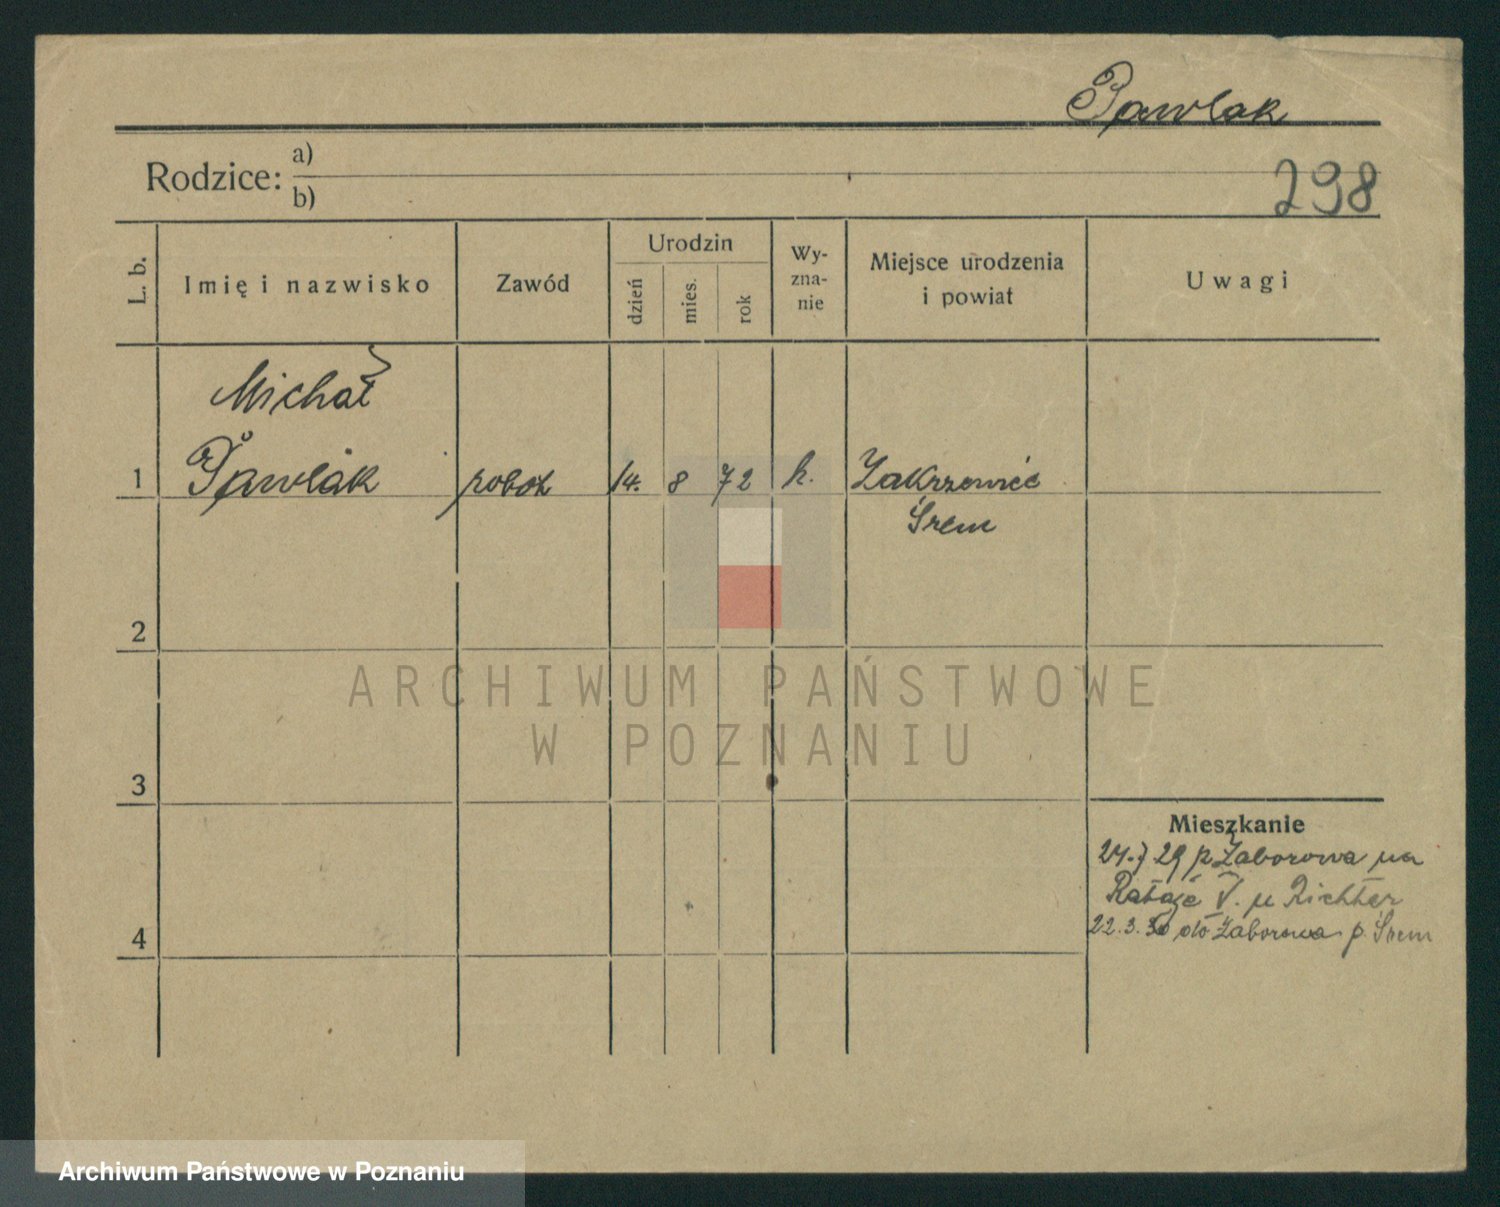 Pawlak
Rodzice: a)
b)
298
L. b.
Imię i nazwisko
Zawód
Urodzin
dzień
mies.
rok
Wy-
zna-
nie
Miejsce urodzenia
i powiat
Uwagi
Michał
1 Pawlak robot 14. 8 72 k. Zakrzewice
Śrem
2
ARCHIWUM PAŃSTWOWE
W POZNANIU
3
Mieszkanie
24.7 29 p Zaborowa na
Rataje V. u Richter
4
22.3.30 do Zaborowa p. Śrem
Archiwum Państwowe w Poznaniu